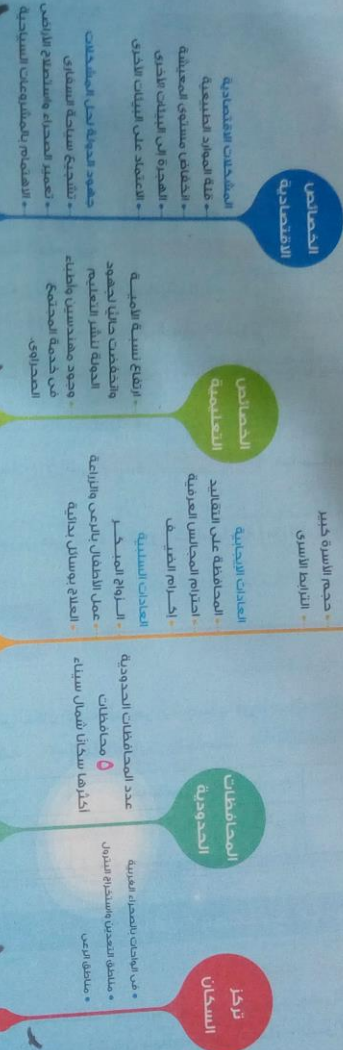 تركز
السكان
• في الواحات بالصحراء الغربية
• مناطق التعدين واستخراج البترول
• مناطق الرعي
المحافظات
الحدودية
عدد المحافظات الحدودية
٥ محافظات
أكثرها سكانًا شمال سيناء
• حجم الأسرة كبير
• الترابط الأسري
العادات الإيجابية
• المحافظة على التقاليد
• احترام المجالس العرفية
• إكرام الضيف
العادات السلبية
• الزواج المبكر
• عمل الأطفال بالرعي والزراعة
• العلاج بوسائل بدائية
الخصائص
التعليمية
• ارتفاع نسبة الأمية
وانخفضت حاليًا لجهود
الدولة لنشر التعليم
• وجود مهندسين وأطباء
في خدمة المجتمع
الصحراوي.
الخصائص
الاقتصادية
المشكلات الاقتصادية
• قلة الموارد الطبيعية
• انخفاض مستوى المعيشة
• الهجرة إلى البيئات الأخرى
• الاعتماد على البيئات الأخرى
جهود الدولة لحل المشكلات
• تشجيع سياحة السفاري
• تعمير الصحراء واستصلاح الأراضي
• الاهتمام بالمشروعات السياحية